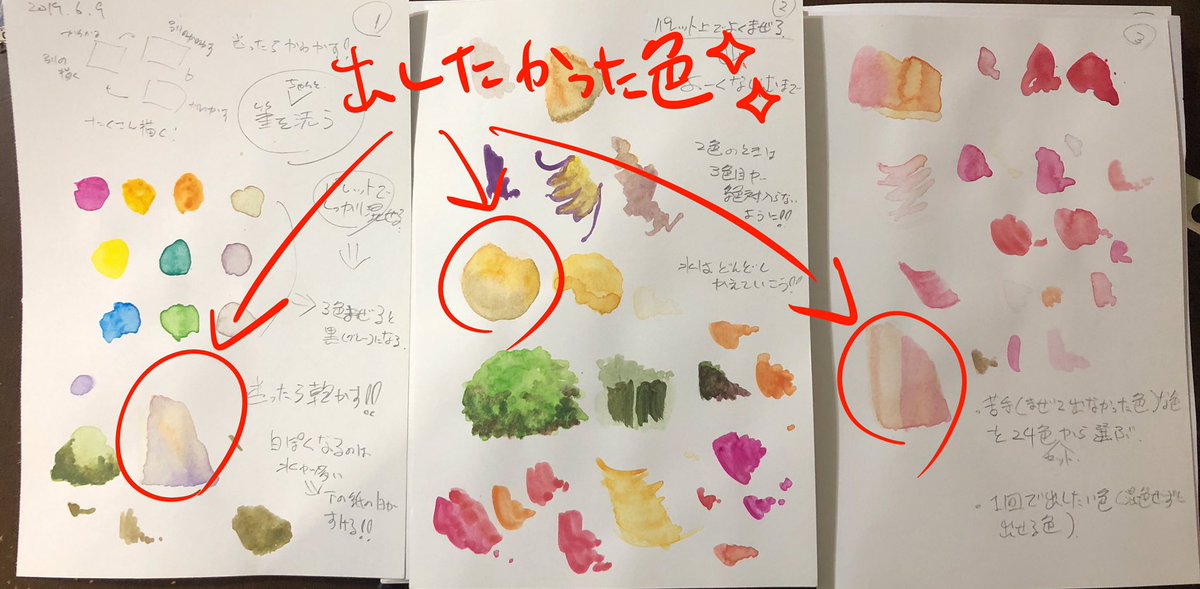 出したかった色
2019.6.9
①
かわかす
別のかわかす
別の描く
かわかす
たくさん描く!
迷ったらかわかす!!
ちゃんと
筆を洗う
パレットで
しっかり混ぜる
3色まぜると
黒(グレー)になる.
迷ったら乾かす!!
白ぽくなるのは
水が多い
下の紙の白が
すける!!
②
パレット上でよくまぜる.
2色のときは
3色目が
絶対入らない
ように!!
水はどんどん
かえていこう!!
③
・苦手(まぜて出なかった色)な色
を24色から選ぶ.
セット
・1回で出したい色(混色せずに
出せる色)